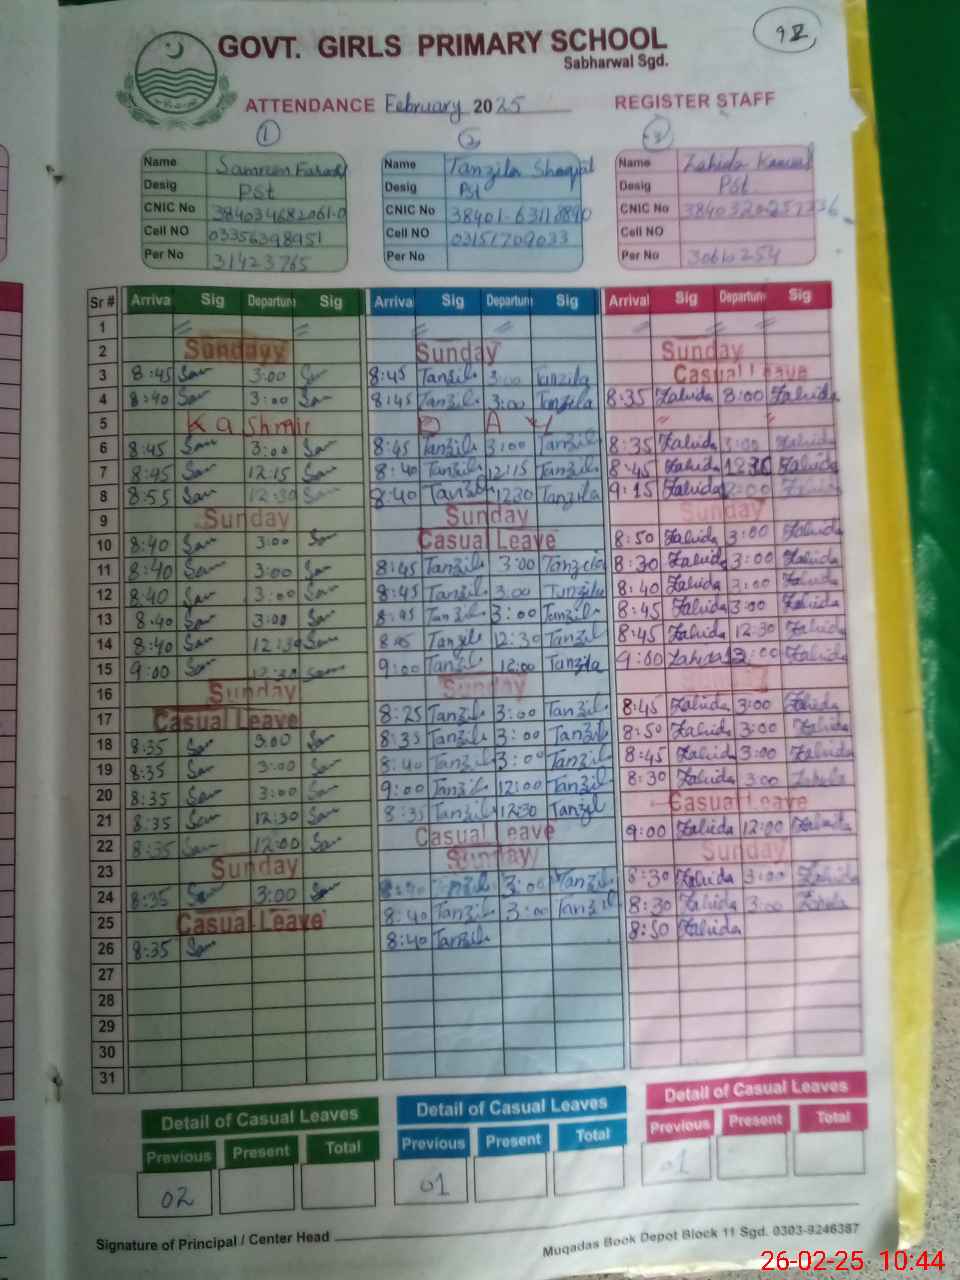 9 II
GOVT. GIRLS PRIMARY SCHOOL
Sabharwal Sgd.
ATTENDANCE February 2025 REGISTER STAFF
1 2 3
Name Samreen Name Tanzila Name Zahida
Desig Pst Desig Pst Desig Pst
CNIC No CNIC No CNIC No
Cell NO 03356398951 Cell NO 03151709033 Cell NO
Per No 31423765 Per No Per No 30610254
Sr # Arrival Sig Departure Sig Arrival Sig Departure Sig Arrival Sig Departure Sig
1
2 Sunday Sunday Sunday
3 8:45 Sam 3:00 Sam 8:45 Tanzila 3:00 Tanzila Casual Leave
4 8:40 Sam 3:00 Sam 8:45 Tanzila 3:00 Tanzila 8:35 Zahida 3:00 Zahida
5 Kashmir D A Y
6 8:45 Sam 3:00 Sam 8:45 Tanzila 3:00 Tanzila 8:35 Zahida 3:00 Zahida
7 8:45 Sam 12:15 Sam 8:40 Tanzila 12:15 Tanzila 8:45 Zahida Zahida
8 8:55 Sam 12:30 Sam 8:40 Tanzila 1230 Tanzila 9:15 Zahida Zahida
9 Sunday Sunday Sunday
10 8:40 Sam 3:00 Sam Casual Leave 8:50 Zahida 3:00 Zahida
11 8:40 Sam 3:00 Sam 8:45 Tanzila 3:00 Tanzila 8:30 Zahida 3:00 Zahida
12 8:40 Sam 3:00 Sam 8:45 Tanzila 3:00 Tanzila 8:40 Zahida 3:00 Zahida
13 8:40 Sam 3:00 Sam 8:45 Tanzila 3:00 Tanzila 8:45 Zahida 3:00 Zahida
14 8:40 Sam 12:30 Sam Tanzila 12:30 Tanzila 8:45 Zahida 12:30 Zahida
15 9:00 Sam 12:30 Sam 9:00 Tanzila 12:00 Tanzila 9:00 Zahida 12:00 Zahida
16 Sunday Sunday Sunday
17 Casual Leave 8:25 Tanzila 3:00 Tanzila 8:45 Zahida 3:00 Zahida
18 8:35 Sam 3:00 Sam 8:35 Tanzila 3:00 Tanzila 8:50 Zahida 3:00 Zahida
19 8:35 Sam 3:00 Sam 8:40 Tanzila 3:00 Tanzila 8:45 Zahida 3:00 Zahida
20 8:35 Sam 3:00 Sam 9:00 Tanzila 12:00 Tanzila 8:30 Zahida 3:00 Zahida
21 8:35 Sam 12:30 Sam 8:35 Tanzila 12:30 Tanzila Casual Leave
22 8:35 Sam 12:00 Sam Casual Leave 9:00 Zahida 12:00 Zahida
23 Sunday Sunday Sunday
24 8:35 Sam 3:00 Sam 3:00 Tanzila 8:30 Zahida 3:00 Zahida
25 Casual Leave 8:40 Tanzila 3:00 Tanzila 8:30 Zahida 3:00 Zahida
26 8:35 Sam 8:40 Tanzila 8:50 Zahida
27
28
29
30
31
Detail of Casual Leaves Detail of Casual Leaves Detail of Casual Leaves
Previous Present Total Previous Present Total Previous Present Total
02 01 01
Signature of Principal / Center Head
Muqadas Book Depot Block 11 Sgd. 0303-9246387
26-02-25 10:44